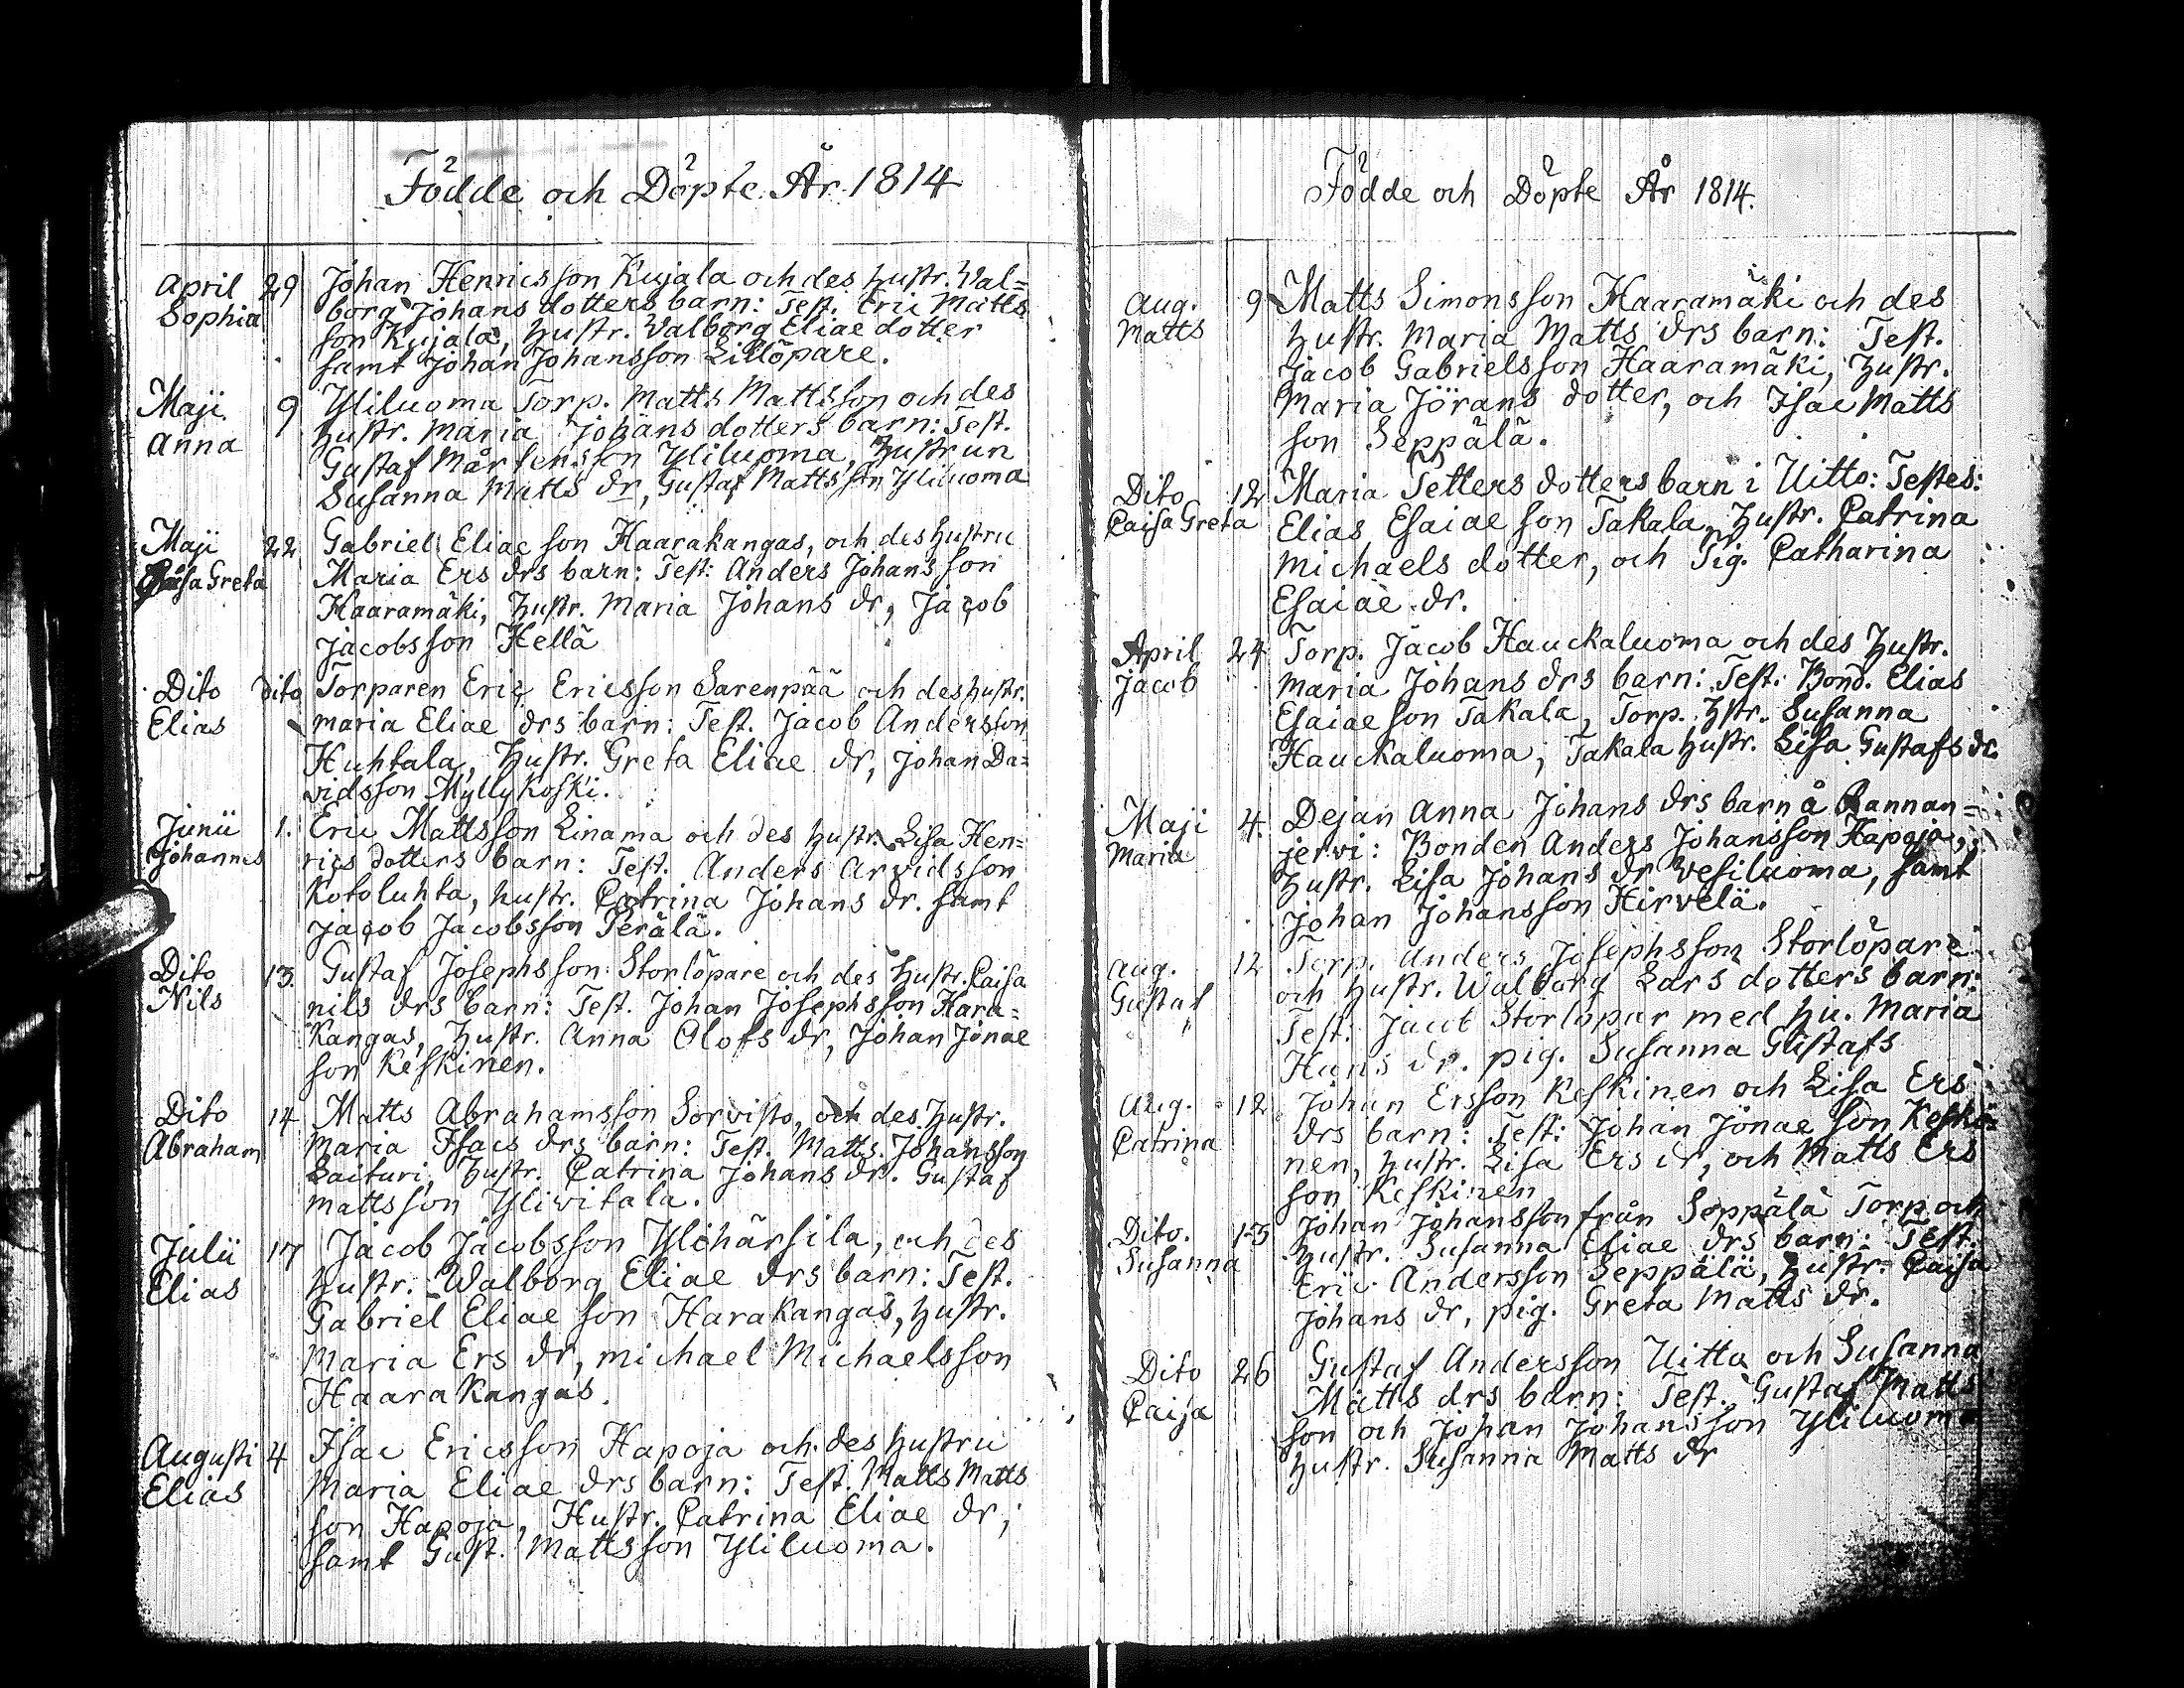 Födde och Döpte År 1814
April 29 Johan Henricsson Kujala och des hustr. Wal=
Sophia borg Johans dotters barn: Test. Eric Matts
son Kujala, hustr. Valborg Eliae dotter
samt Johan Johansson Lillöpare.
Maji 9 Yliluoma Torp. Matts Mattsson och des
Anna hustr. Maria Johans dotters barn: Test.
Gustaf Mårtensson Yliluoma, hustrun
Susanna Matts dr, Gustaf Mattsson Yliluoma
Maji 22 Gabriel Eliae son Haarakangas, och des hustru
Caisa Greta Maria Ers drs barn: Test: Anders Johans son
Haaramäki, hustr. Maria Johans dr, Jacob
Jacobsson Hellä
Dito dito Torparen Eric Ericsson Sarenpää och des hustr.
Elias Maria Eliae drs barn: Test. Jacob Andersson
Huhtala, Hustr. Greta Eliae dr, Johan Da=
vidsson Myllykoski.
Junii 1. Eric Mattsson Linama och des hustr. Lisa Hen=
Johannes rics dotters barn: Test. Anders Arvidsson
Kotoluhta, hustr. Catrina Johans dr. samt
Jacob Jacobsson Perälä.
Dito 13. Gustaf Josephsson Storlöpare och des Hustr. Caisa
Nils Nils drs barn: Test. Johan Josephsson Hara=
kangas, Hustr. Anna Olofs dr, Johan Jonae
son Keskinen.
Dito 14 Matts Abrahamsson Sorvisto, och des Hustr.
Abraham Maria Isacs drs barn: Test. Matts Johansson
Laituri, Hustr. Catrina Johans dr. Gustaf
Mattsson Yliwitala.
Julii 17 Jacob Jacobsson Ylihärsila, och des
Elias hustr. Walborg Eliae drs barn: Test.
Gabriel Eliae son Harakangas, hustr.
Maria Ers dr, Michael Michaelsson
Haarakangas.
Augusti 4 Isac Ericsson Hapoja och des hustru
Elias Maria Eliae drs barn: Test. Matts Matts
son Hapoja, Hustr. Catrina Eliae dr;
samt Gust. Mattsson Yliluoma.
Födde och Döpte År 1814.
Aug. 9 Matts Simonsson Haaramäki och des
Matts hustr. Maria Matts drs barn: Test.
Jacob Gabrielsson Haaramäki, hustr.
Maria Jörans dotter, och Isac Matts
son Seppälä.
Dito 12 Maria Petters dotters barn i Uitto: Testes:
Caisa Greta Elias Esaiae son Takala, hustr. Catrina
Michaels dotter, och Pig. Catharina
Esaiae dr.
April 24 Torp. Jacob Hauckaluoma och des Hustr.
Jacob Maria Johans drs barn: Test. Bond. Elias
Esaiae son Takala, Torp. Hstr. Susanna
Hauckaluoma, Takala hustr. Lisa Gustafs dr.
Maji 4. Dejan Anna Johans drs barn å Rannan=
Maria jervi: Bonden Anders Johansson Hapoja,
Hustr. Lisa Johans dr Vesiluoma, samt
Johan Johansson Hirvelä.
Aug. 12 Torp. Anders Josephsson Storlöpare
Gustaf och Hustr. Walborg Lars dotters barn:
Test: Jacob Storlöpar med hu. Maria
Hans dr. pig. Susanna Gustafs
Aug. 12 Johan Ersson Keskinen och Lisa Ers
Catrina drs barn: Test: Johan Jonae son Keski=
nen, hustr. Lisa Ers dr, och Matts Ers
son Keskinen
Dito. 15 Johan Johansson från Seppälä Torp och
Susanna Hustr. Susanna Eliae drs barn: Test.
Eric Andersson Seppälä, hustr. Caisa
Johans dr, pig. Greta Matts dr.
Dito 26 Gustaf Andersson Uitto och Susanna
Caisa Matts drs barn: Test. Gustaf Matts
son och Johan Johansson Yliluoma
hustr. Susanna Matts dr